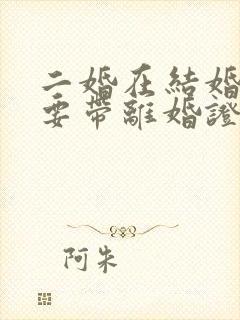 二婚在結婚
要帶離婚證
阿朱